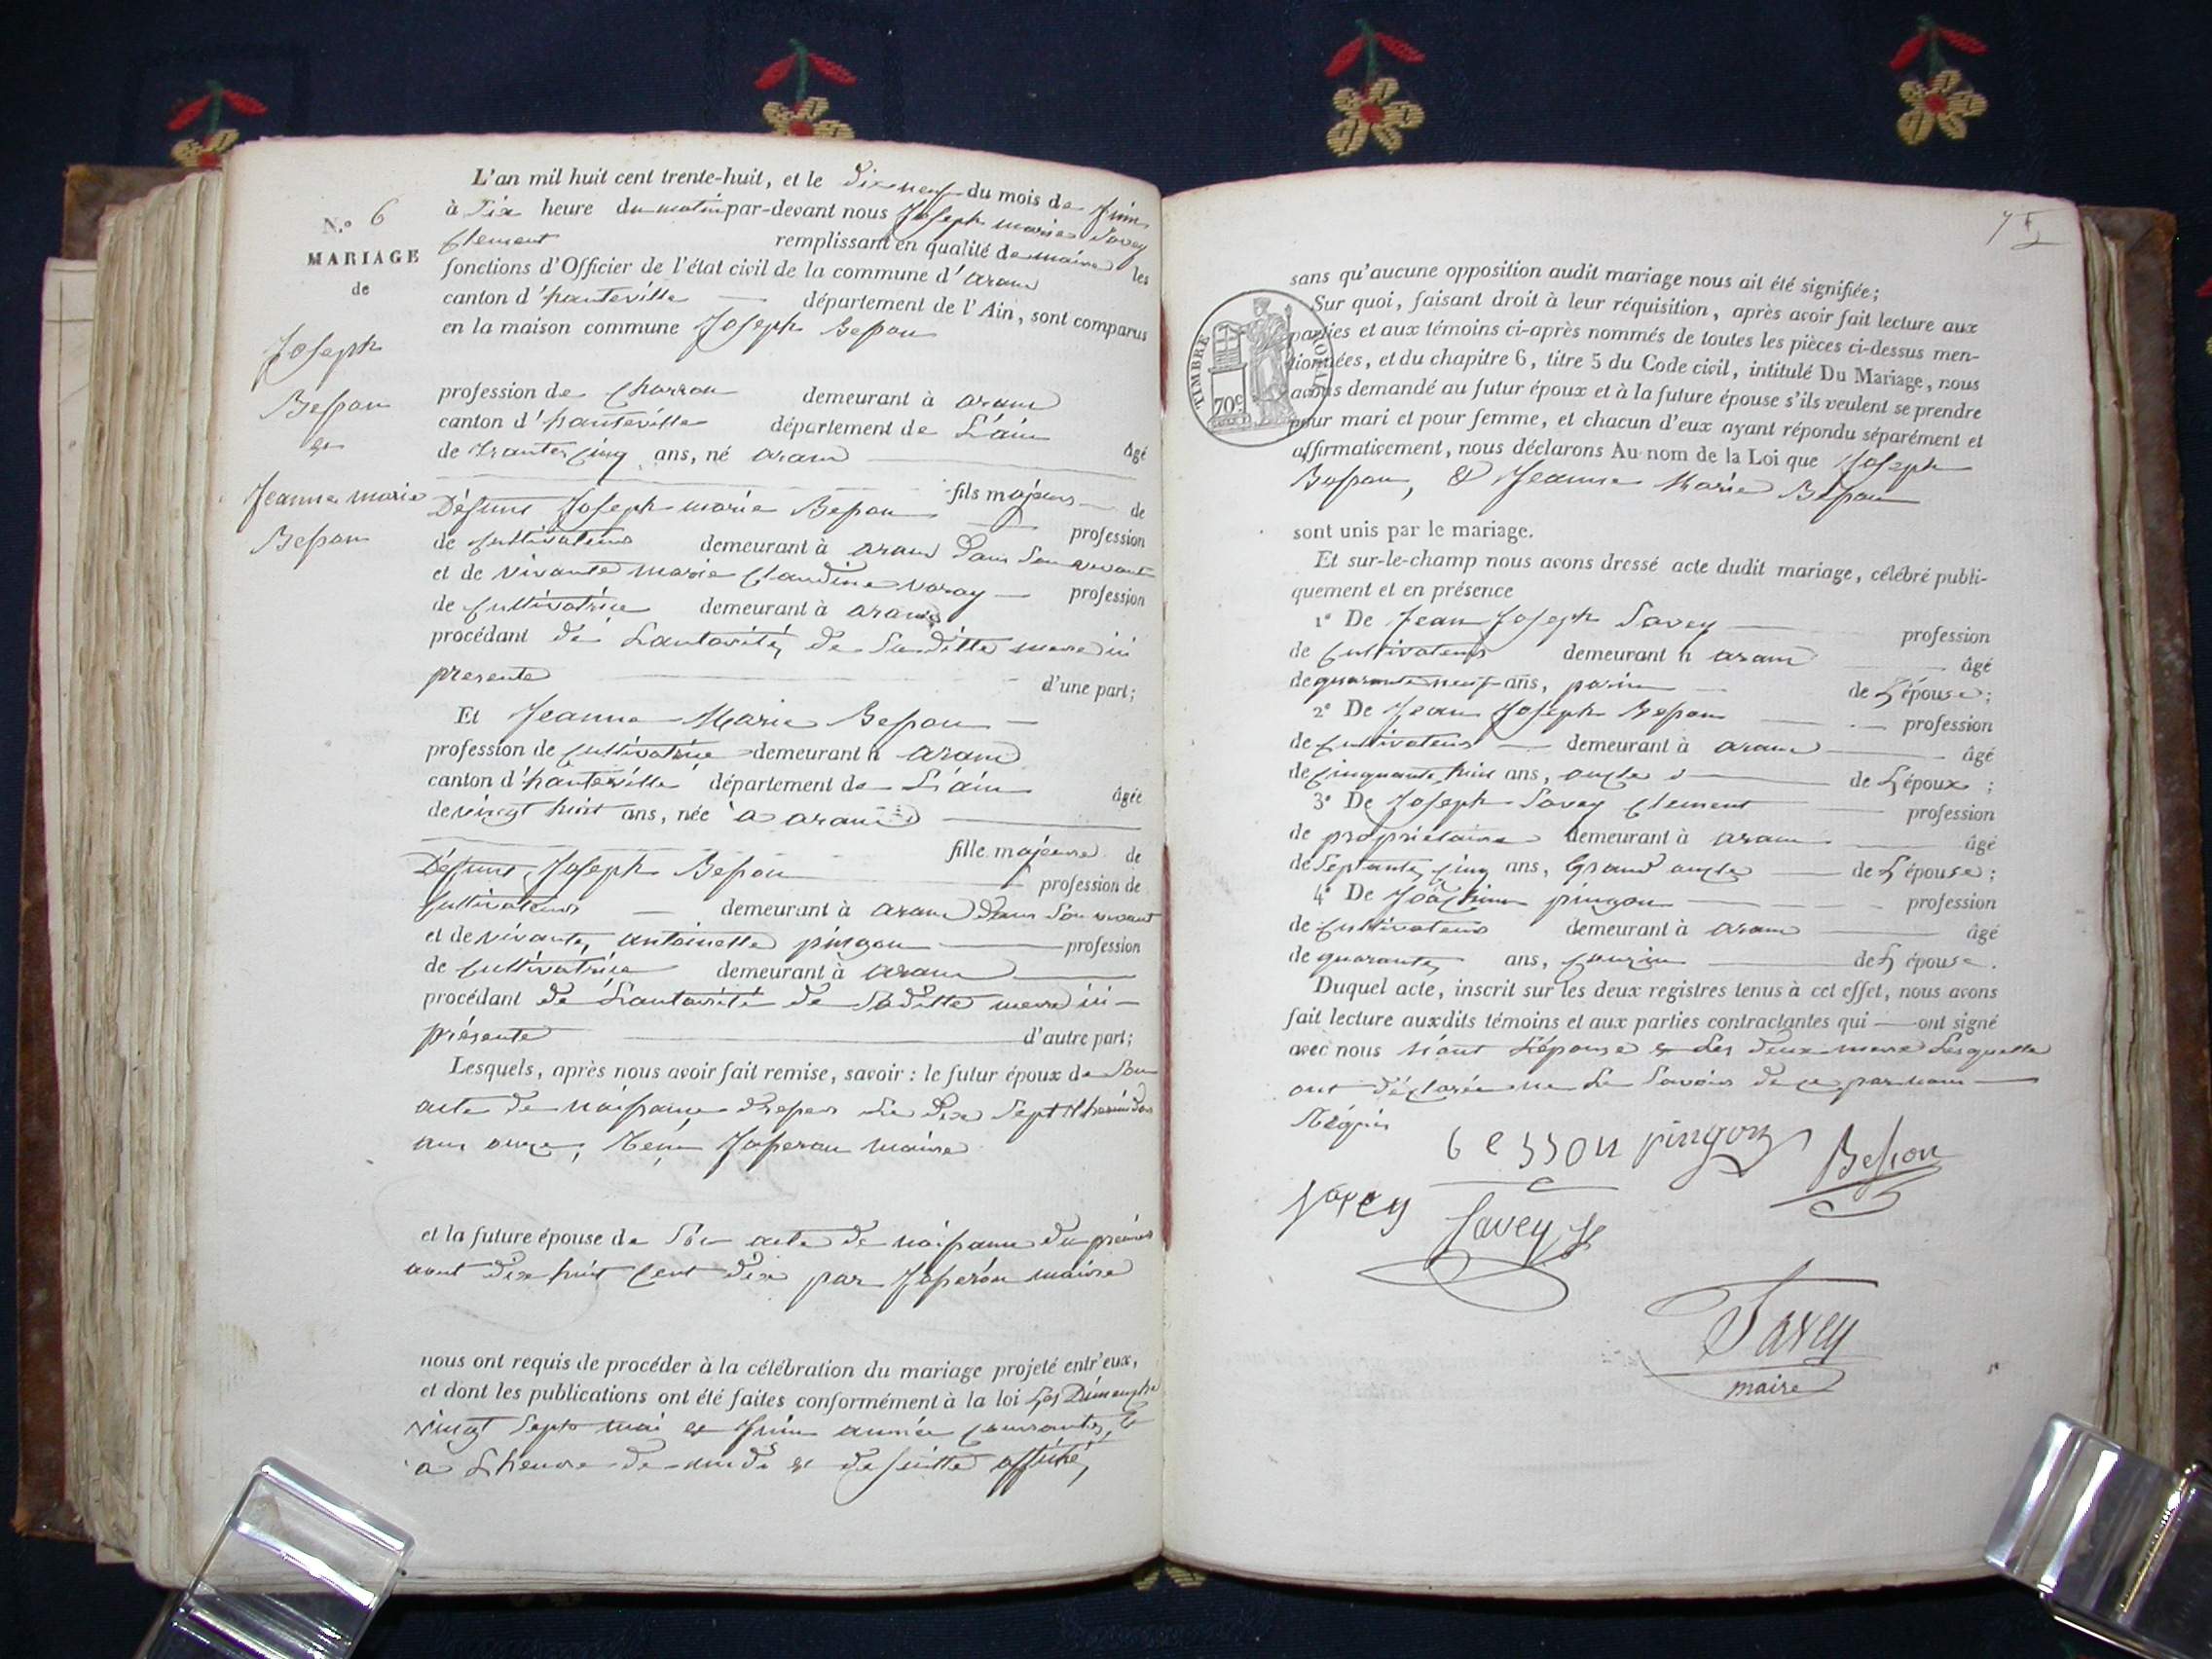 N.º 6
MARIAGE
de
Joseph
Besson
et
Jeanne marie
Besson
L'an mil huit cent trente-huit, et le dix neuf du mois de juin
à dix heure du matin par-devant nous Joseph marie Savey
Clement remplissant en qualité de maire les
fonctions d'Officier de l'état civil de la commune d'aranc
canton d'hauteville département de l'Ain, sont comparus
en la maison commune Joseph Besson
profession de Charron demeurant à aranc
canton d'hauteville département de L'ain
âgé
de trante cinq ans, né aranc
fils majeur de
Défunt Joseph marie Besson profession
de Cultivateur demeurant à aranc dans son vivant
et de vivante marie Claudine varay profession
de Cultivatrice demeurant à aranc
procédant de Lautorité de Sa ditte mere ici
presente d'une part;
Et Jeanne Marie Besson
profession de Cultivatrice demeurant à aranc
canton d'hauteville département de L'ain âgée
de vingt huit ans, née a aranc
fille majeure de
Défunt Joseph Besson profession de
Cultivateur demeurant à aranc dans Son vivant
et de vivante, antoinette pingon profession
de Cultivatrice demeurant à aranc
procédant de Lautorité de Saditte mere ici
présente d'autre part;
Lesquels, après nous avoir fait remise, savoir : le futur époux de Son
acte de naissance du dix Sept
an onze, Joseran maire
et la future épouse de Son acte de naissance du premier
aout dix huit Cent dix par Joseran maire
nous ont requis de procéder à la célébration du mariage projeté entr'eux,
et dont les publications ont été faites conformément à la loi Les Dimanche
vingt Sept mai et juin année courante,
a Lheure de midi et de suitte affiché,
sans qu'aucune opposition audit mariage nous ait été signifiée;
Sur quoi, faisant droit à leur réquisition, après avoir fait lecture aux
parties et aux témoins ci-après nommés de toutes les pièces ci-dessus men-
tionnées, et du chapitre 6, titre 5 du Code civil, intitulé Du Mariage, nous
avons demandé au futur époux et à la future épouse s'ils veulent se prendre
pour mari et pour femme, et chacun d'eux ayant répondu séparément et
affirmativement, nous déclarons Au nom de la Loi que Joseph
Besson, & Jeanne Marie Besson
TIMBRE ROYAL
70c
sont unis par le mariage.
Et sur-le-champ nous avons dressé acte dudit mariage, célébré publi-
quement et en présence
1º De Jean Joseph Savey profession
de Cultivateur demeurant à aranc âgé
de quarante neuf ans, parin de L'épouse;
2º De Jean Joseph Besson profession
de Cultivateur demeurant à aranc âgé
de Cinquante huit ans, oncle de L'époux;
3º De Joseph Savey Clement profession
de propriétaire demeurant à aranc âgé
de Septante Cinq ans, Grand oncle de L'épouse;
4º De Joachim pingon profession
de Cultivateur demeurant à aranc âgé
de quarante ans, Couzin de L épouse.
Duquel acte, inscrit sur les deux registres tenus à cet effet, nous avons
fait lecture auxdits témoins et aux parties contractantes qui ont signé
avec nous L'épouse & Les deux mere Lesquelle
ont déclarée ne Le Savoir de ce par nous
Réquis
besson pingon Besson
Savey
Savey
Savey
maire